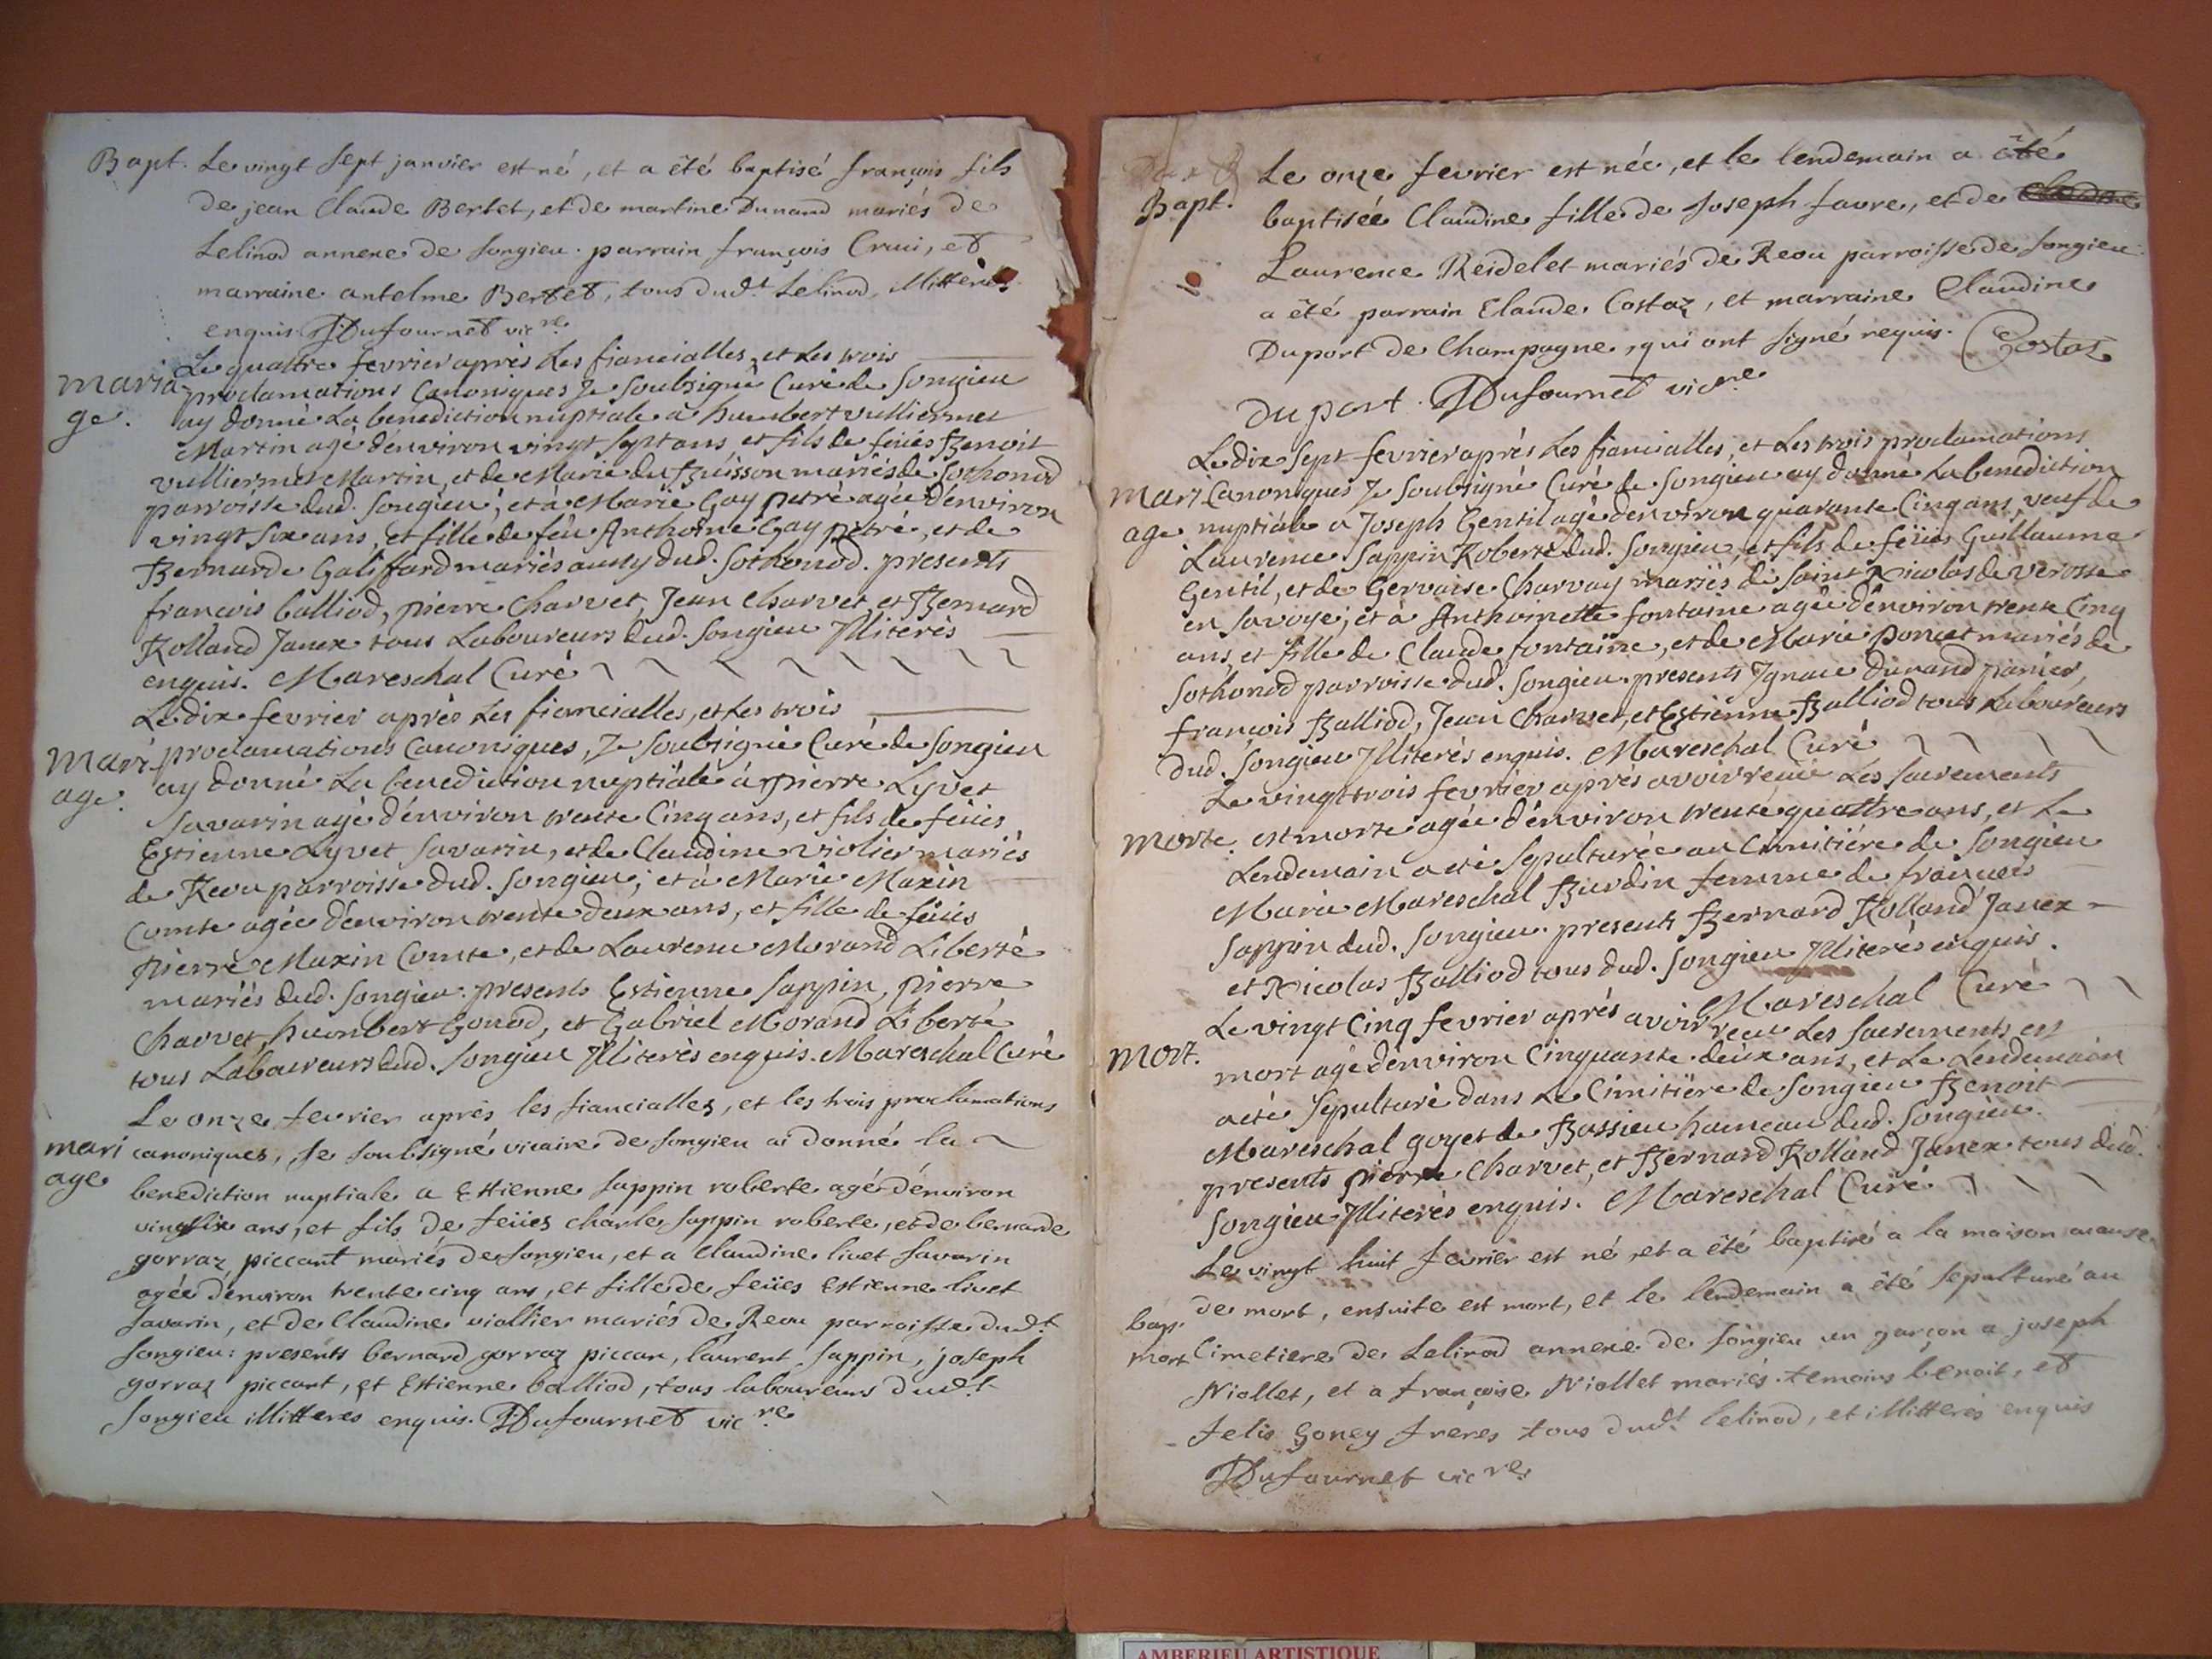 Bapt. Le vingt sept janvier est né, et a été baptisé françois fils
de jean Claude Bertet, et de martine Dunand mariés de
Lelinod annexe de songieu. parrain françois Crui, et
marraine antelme Bertet, tous dud.t Lelinod, illitterés
enquis. Dufournet vic.re
Le quattre fevrier après les fiancialles, et les trois
maria proclamations Canoniques Je soubsigné Curé de Songieu
ge. ay donné La benediction nuptiale à humbert vulliermet
Martin agé d'environ vingt sept ans et fils de feües Benoit
vulliermet Martin, et de Marie du Buisson mariés de Sothonod
parroisse dud. Songieu; et à Marie Gay petré agée d'environ
vingt six ans, et fille de feu Anthoine Gay petré, et de
Bernarde Galiffard mariés aussy dud. Sothonod. presents
francois balliod, pierre Charvet, Jean Charvet, et Bernard
Rolland Janex tous Laboureurs dud. Songieu Illiterés
enquis. Mareschal Curé
Le dix fevrier après les fiancialles, et les trois
mari proclamations Canoniques, Je soubsigné Curé de Songieu
age. ay donné La benediction nuptiale à pierre Lyvet
Savarin agé d'environ trente Cinq ans, et fils de feües
Estienne Lyvet Savarin, et de Claudine violier mariés
de Reou parroisse dud. Songieu; et à Marie Maxin
Comte agée d'environ trente deux ans, et fille de feües
pierre Maxin Comte, et de Laurence Morand Liberté
mariés dud. Songieu. presents Estienne Sappin, pierre
Charvet, humbert Gonod, et Gabriel Morand Liberté
tous Laboureurs dud. Songieu Illiterés enquis. Mareschal Curé
Le onze fevrier après les fiancialles, et les trois proclamations
mari canoniques, Je soubsigné vicaire de songieu ai donné la
age benediction nuptiale a Estienne sappin roberte agé d'environ
vingt six ans, et fils de feües charle sappin roberte, et de bernarde
gorraz piccant mariés de songieu, et a claudine livet savarin
agée d'environ trente cinq ans, et fille de feües Estienne livet
savarin, et de Claudine viollier mariés de Reou parroisse dud.t
songieu: presents bernard gorraz piccan, laurent sappin, joseph
gorraz piccant, et Estienne balliod, tous laboureurs dud.t
songieu illitterés enquis. Dufournet vic.re
Le onze fevrier est née, et le lendemain a été
Bapt. baptisée Claudine fille de Joseph favre, et de
Laurence Reidelet mariés de Reou parroisse de songieu
a été parrain Claude Costaz, et marraine Claudine
Duport de Champagne, qui ont signé requis. Costaz
du port. Dufournet vic.re
Le dix sept fevrier après les fiancialles, et les trois proclamations
mari Canoniques Je soubsigné Curé de Songieu ay donné La benediction
age nuptiale à Joseph Gentil agé d'environ quarante Cinq ans, veuf de
Laurence Sappin Roberte dud. Songieu, et fils de feües Guillaume
Gentil, et de Gervaise Charvay mariés de Saint Nicolas de verosse
en savoye; et à Anthoinette fontaine agée d'environ trente Cinq
ans, et fille de Claude fontaine, et de Marie poncet mariés de
Sothonod parroisse dud. Songieu. presents Ignace Dunand panier,
francois Balliod, Jean Charvet, et Estienne Balliod tous Laboureurs
dud. Songieu Illiterés enquis. Mareschal Curé
Le vingt trois fevrier après avoir receu Les sacrements
morte. est morte agée d'environ trente quattre ans, et le
Lendemain a été sepulturée au Cimitiére de Songieu
Marie Mareschal Burdin femme de françois
Sappin dud. Songieu. presents Bernard Rolland Janex
et Nicolas Balliod tous dud. Songieu Illiterés enquis.
Mareschal Curé
Le vingt Cinq fevrier après avoir receu Les sacrements est
mort. mort agé d'environ Cinquante deux ans, et Le Lendemain
a eté sepulturé dans Le Cimitiére de Songieu Benoit
Mareschal goyet de Bassieu hameau dud. Songieu.
presents pierre Charvet, et Bernard Rolland Janex tous dud.
Songieu Illiterés enquis. Mareschal Curé
Le vingt huit fevrier est né, et a été baptisé a la maison
bap. de mort, ensuite est mort, et le lendemain a été sepulturé au
mort Cimetiere de Lelinod annexe de songieu un garçon a joseph
Niollet, et a françoise Niollet mariés. temoins benoit, et
felis Goney freres tous dud.t lelinod, et illitterés enquis
Dufournet vic.re
AMBERIEU ARTISTIQUE